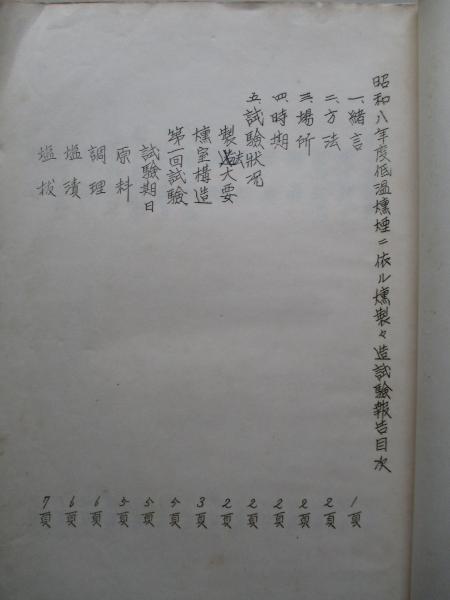 昭和八年度低温燻煙ニ依ル燻製々造試験報告目次
一、緒言 1頁
二、方法 2頁
三、場所 2頁
四、時期 2頁
五、試験状况 2頁
製法大要 2頁
燻室構造 3頁
第一回試験 4頁
試験期日 5頁
原料 5頁
調理 6頁
塩漬 6頁
塩抜 7頁